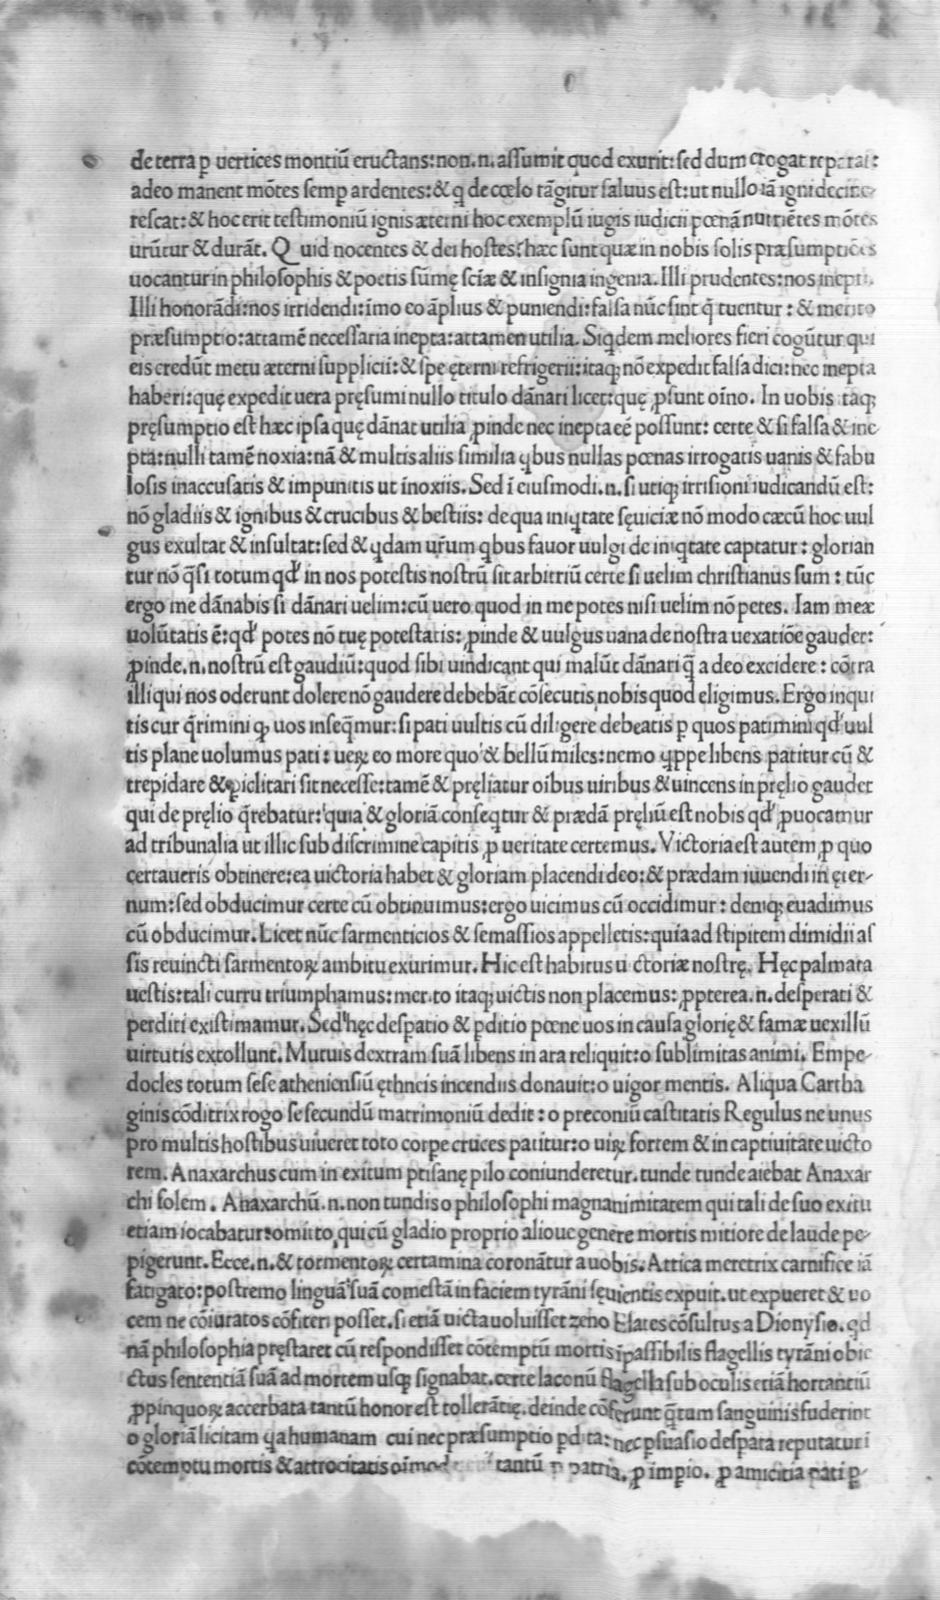 de terra ꝑ uertices montiū eructans:non.n.assumit quod exurit:sed dum erogat reparat:
adeo manent mōtes semꝑ ardentes:& q̨ de cœlo tāgitur saluus est:ut nullo iā igni decine
rescat:& hoc erit testimoniū ignis æterni hoc exemplū iugis iudicii pœnā nutriētes mōtes
urūtur & durāt. Quid nocentes & dei hostes:hæc sunt quæ in nobis solis præsumptiōes
uocantur in philosophis & poetis sūmę sciæ & insignia ingenia. Illi prudentes:nos inepti.
Illi honorādi:nos irridendi:imo eo āplius & puniendi:falsa nūc sint q̄ tuentur: & merito
præsumptio:attamē necessaria inepta:attamen utilia. Siqdem meliores fieri cogūtur qui
eis credūt metu æterni supplicii:& spe ęterni refrigerii:itaq; nō expedit falsa dici:nec inepta
haberi:quę expedit uera pręsumi nullo titulo dānari licet:quę ꝓsunt oīno. In uobis itaq;
pręsumptio est hæc ipsa quę dānat utilia ꝓinde nec inepta eē possunt: certe & si falsa & ine-
pta:nulli tamē noxia:nā & multis aliis similia qbus nullas pœnas irrogatis uanis & fabu
losis inaccusatis & impunitis ut inoxiis. Sed ī eiusmodi.n. si utiq; irrisioni iudicandū est:
nō gladiis & ignibus & crucibus & bestiis: de qua iniqtate sęuiciæ nō modo cæcū hoc uul
gus exultat & insultat:sed & qdam ur̄um qbus fauor uulgi de iniqtate captatur: glorian
tur nō q̄si totum qd' in nos potestis nostrū sit arbitriū certe si uelim christianus sum: tūc
ergo me dānabis si dānari uelim:cū uero quod in me potes nisi uelim nō petes. Iam meæ
uolūtatis ē:qd' potes nō tuę potestatis: ꝓinde & uulgus uana de nostra uexatiōe gaudet:
ꝓinde.n.nostrū est gaudiū:quod sibi uindicant qui malūt dānari q̄ a deo excidere: cōtra
illi qui nos oderunt dolere nō gaudere debebāt cōsecutis nobis quod eligimus. Ergo inqui
tis cur q̄rimini q; uos inseq̄mur:si pati uultis cū diligere debeatis ꝑ quos patimini qd' uul
tis plane uolumus pati: ueꝝ eo more quo & bellū miles:nemo qppe libens patitur cū &
trepidare & ꝑiclitari sit necesse:tamē & pręliatur oibus uiribus & uincens in pręlio gaudet
qui de pręlio q̄rebatur:quia & gloriā conseqtur & prædā pręliū est nobis qd' ꝓuocamur
ad tribunalia ut illic sub discrimine capitis ꝓ ueritate certemus. Victoria est autem ꝓ quo
certaueris obtinere:ea uictoria habet & gloriam placendi deo:& prædam uiuendi in ęter-
num:sed obducimur certe cū obtinuimus:ergo uicimus cū occidimur: deniq; euadimus
cū obducimur. Licet nūc sarmenticios & semassios appelletis:quia ad stipitem dimidii as
sis reuincti sarmentoꝝ ambitu exurimur. Hic est habitus uictoriæ nostrę. Hęc palmata
uestis:tali curru triumphamus:merito itaq; uictis non placemus: ꝓpterea.n. desperati &
perditi existimamur. Sed hęc despatio & ꝑditio pœne uos in causa glorię & famæ uexillū
uirtutis extollunt. Mutuis dextram suā libens in ara reliquit:o sublimitas animi. Empe-
docles totum sese atheniensiū ęthneis incendiis donauit:o uigor mentis. Aliqua Cartha
ginis cōditrix rogo se secundū matrimoniū dedit: o preconiū castitatis Regulus ne unus
pro multis hostibus uiueret toto corpe cruces patitur:o uiꝝ fortem & in captiuitate uicto
rem. Anaxarchus cum in exitum ptisanę pilo coniunderetur.tunde tunde aiebat Anaxar
chi folem. Anaxarchū.n. non tundis o philosophi magnanimitatem qui tali de suo exitu
etiam iocabatur:omitto qui cū gladio proprio alioue genere mortis mitiore de laude pe-
pigerunt. Ecce.n.& tormentoꝝ certamina coronātur a uobis. Attica meretrix carnifice iā
fatigato:postremo linguā suā comestā in faciem tyrāni sęuientis expuit.ut expueret & uo
cem ne cōiuratos cōfiteri posset.si etiā uicta uoluisset zeno Elates cōsultus a Dionysio.qd
nā philosophia pręstaret cū respondisset cōtemptū mortis īpassibilis flagellis tyrāni obie
ctus sententiā suā ad mortem usq; signabat.certe laconū flagella sub oculis etiā hortantiū
ꝓpinquoꝝ accerbata tantū honor est tollerātię.deinde cōferunt q̄tum sanguinis fuderint
o gloriā licitam qa humanam cui nec præsumptio ꝑdita: nec ꝑsuasio despata reputatur i
cōtemptu mortis & attrocitatis oīmod tantū ꝓ patria. ꝓ impio. ꝓ amicitia pati ꝑ-